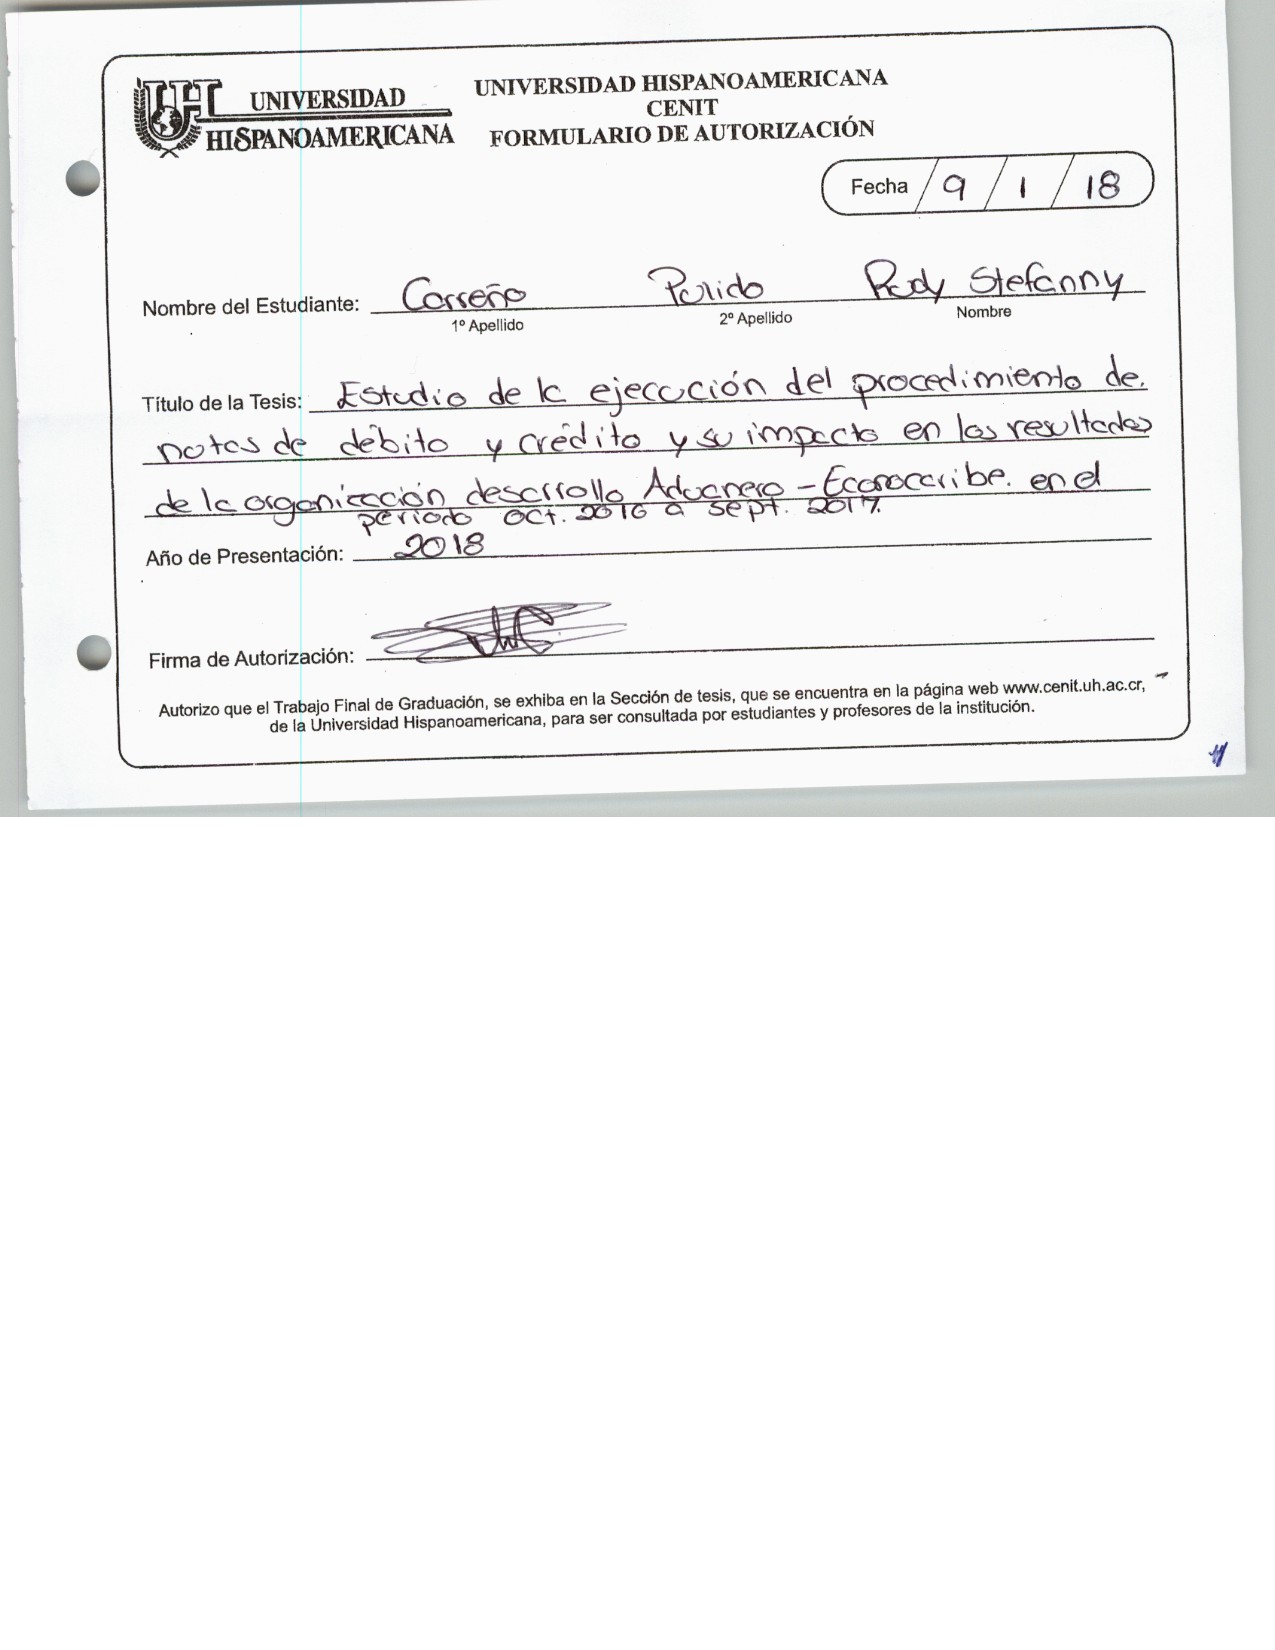 UNIVERSIDAD
HISPANOAMERICANA
UNIVERSIDAD HISPANOAMERICANA
CENIT
FORMULARIO DE AUTORIZACIÓN
Fecha / 9 / 1 / 18
Nombre del Estudiante: Carreño Pulido Rudy Stefanny
1º Apellido 2º Apellido Nombre
Título de la Tesis: Estudio de la ejecución del procedimiento de
notas de débito y crédito y su impacto en los resultados
de la organización desarrollo Aduanero - Econocaribe. en el
periodo oct. 2016 a sept. 2017.
Año de Presentación: 2018
Firma de Autorización:
Autorizo que el Trabajo Final de Graduación, se exhiba en la Sección de tesis, que se encuentra en la página web www.cenit.uh.ac.cr,
de la Universidad Hispanoamericana, para ser consultada por estudiantes y profesores de la institución.